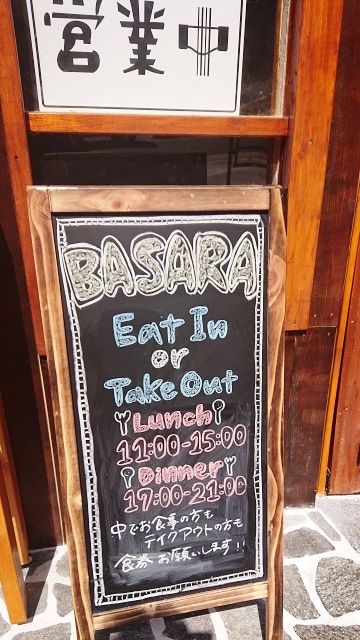 営業中
BASARA
Eat In
or
Take Out
Lunch
11:00-15:00
Dinner
17:00-21:00
中でお食事の方も
テイクアウトの方も
食券お願いします!!